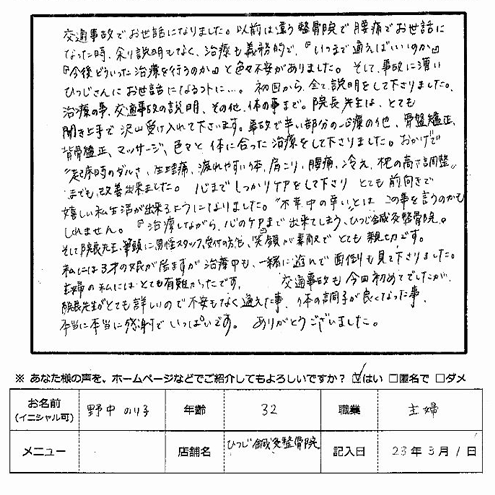 交通事故でお世話になりました。以前は違う整骨院で腰痛でお世話に
なった時、余り説明もなく、治療も義務的で、『いつまで通えばいいのか』
『今後どういった治療を行うのか』と色々不安がありました。そして、事故に遭い
ひつじさんにお世話になるコトに…。初回から、全て説明をして下さりました。
治療の事、交通事故の説明、その他、体の事まで。院長先生は、とても
聞き上手で沢山受け入れて下さいます。事故で辛い部分の治療の他、骨盤矯正、
背骨矯正、マッサージ、色々と体に合った治療をして下さりました。おかげで
起床時のダルさ、生理痛、疲れやすい体、肩こり、腰痛、冷え、枕の高さ調整
までも、改善出来ました。心までしっかりケアをして下さり とても前向きで
嬉しい私生活が出来るようになりました。"不幸中の幸い"とは この事を言うのかも
しれません。『治療しながら、心のケアまで出来てしまう、ひつじ鍼灸整骨院。』
そして院長先生、筆頭に男性スタッフ、受付の方も、笑顔が素敵で とても 親切です。
私には3才の娘が居ますが治療中も、一緒に遊んで面倒も見て下さりました。
主婦の私にはとても有難かったです。 交通事故も今回初めてでしたが、
院長先生がとても詳しいので不安もなく通えた事、体の調子が良くなった事、
本当に本当に感謝でいっぱいです。 ありがとうございました。
※ あなた様の声を、ホームページなどでご紹介してもよろしいですか？ ☑はい □匿名で □ダメ
お名前 (イニシャル可) 野中 のり子 年齢 32 職業 主婦
メニュー 店舗名 ひつじ鍼灸整骨院 記入日 23年 3月 1日